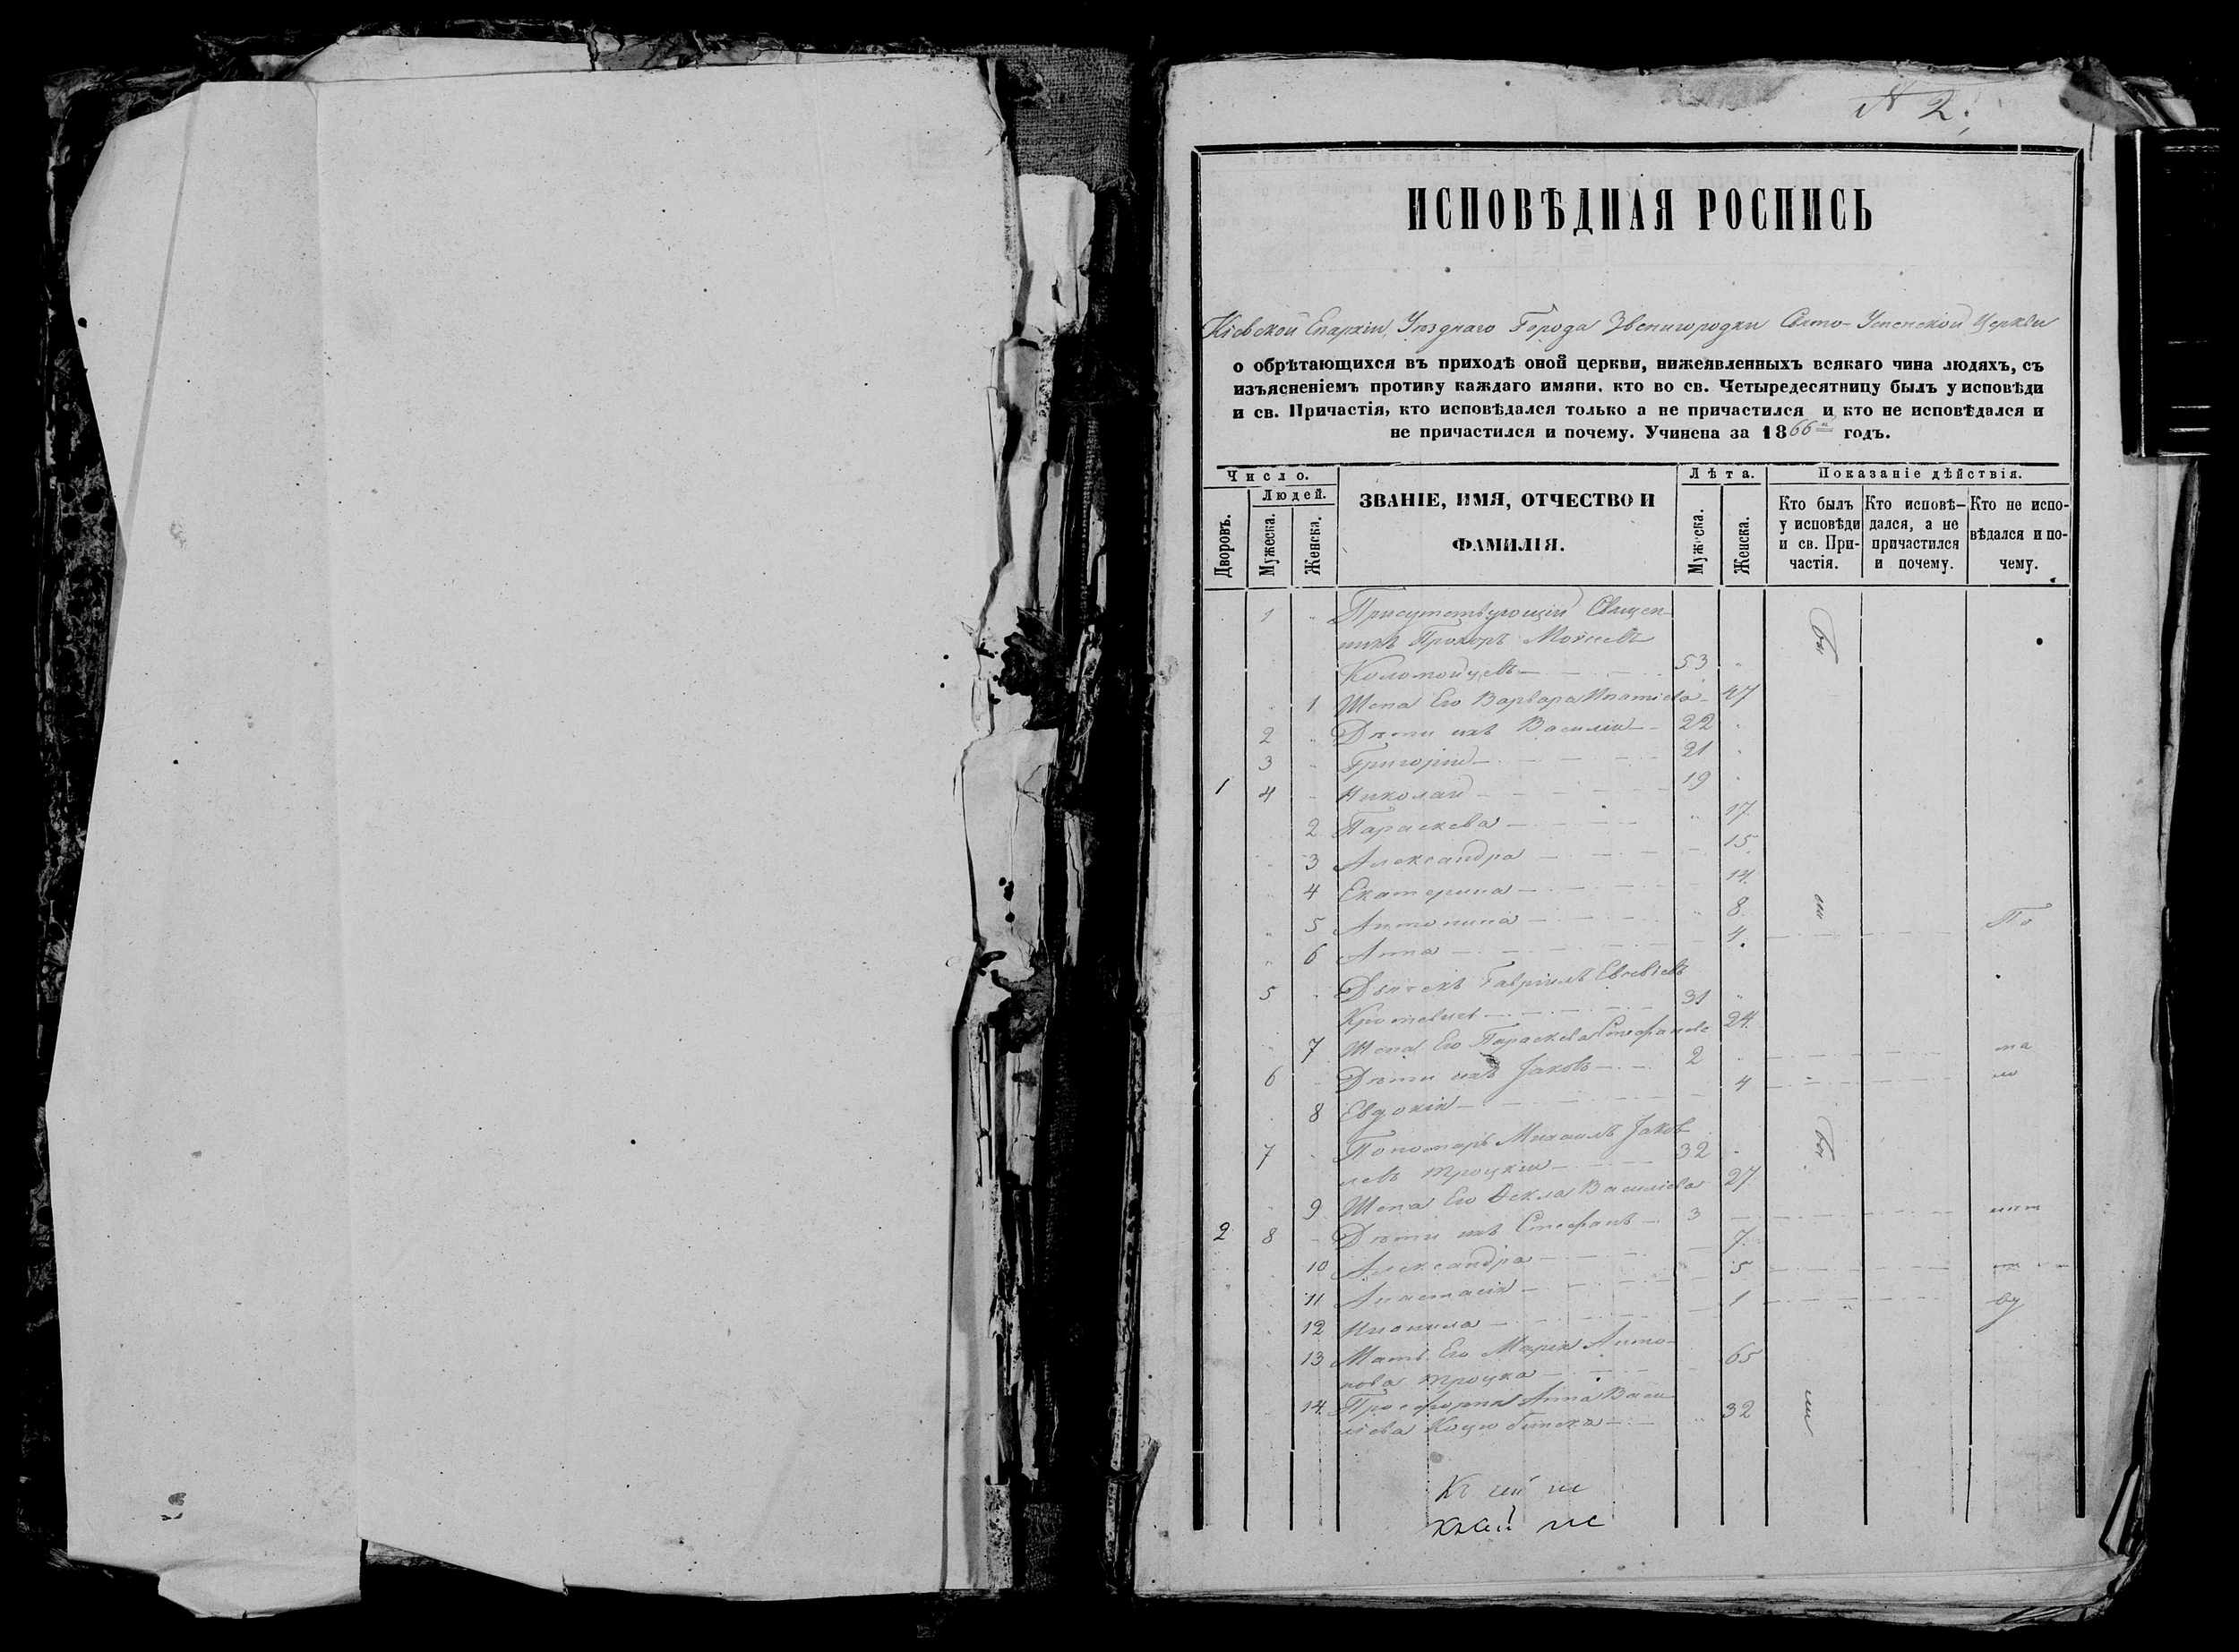 N 2.
ИСПОВѢДНАЯ РОСПИСЬ
Кіевской Епархіи, Уѣзднаго Города Звенигородки Свято-Успенской Церкви
о обрѣтающихся въ приходѣ оной церкви, нижеявленныхъ всякаго чина людяхъ, съ
изъясненіемъ противу каждаго имяни, кто во св. Четыредесятницу былъ у исповѣди
и св. Причастія, кто исповѣдался только а не причастился и кто не исповѣдался и
не причастился и почему. Учинена за 1866й годъ.
Число. Лѣта. Показаніе дѣйствія.
Дворовъ. Людей. Мужеска. Женска. ЗВАНІЕ, ИМЯ, ОТЧЕСТВО И ФАМИЛІЯ. Мужеска. Женска. Кто былъ у исповѣди и св. Причастія. Кто исповѣдался, а не причастился и почему. Кто не исповѣдался и почему.
1 Присутствующій Священ-
никъ Прохоръ Моисеевъ бы
Коломойцевъ 53
1 Жена Его Варвара Игнатіева 47
2 Дѣти ихъ Василій 22
3 Григорій 21
1 4 Николай 19
2 Параскева 17
3 Александра 15
4 Екатерина 14
5 Антонина 8 ли
6 Анна 4 По
5 Дьячекъ Гавріилъ Евсевіевъ
31
7 Жена Его Параскева Стефанова 24
6 Дѣти ихъ Іаковъ 2 ма
8 Евдокія 4 ло
7 Пономарь Михаилъ Іаков-
левъ Троцкій 32 бы
9 Жена Его Ѳекла Василіева 27
2 8 Дѣти ихъ Стефанъ 3
10 Александра 7
11 Анастасія 5
12 1 ву
13 Мать Его Марія Анто-
нова Троцка 65
14 Просфорня Анна Васи-
ліева 32 ли
Къ сей ис